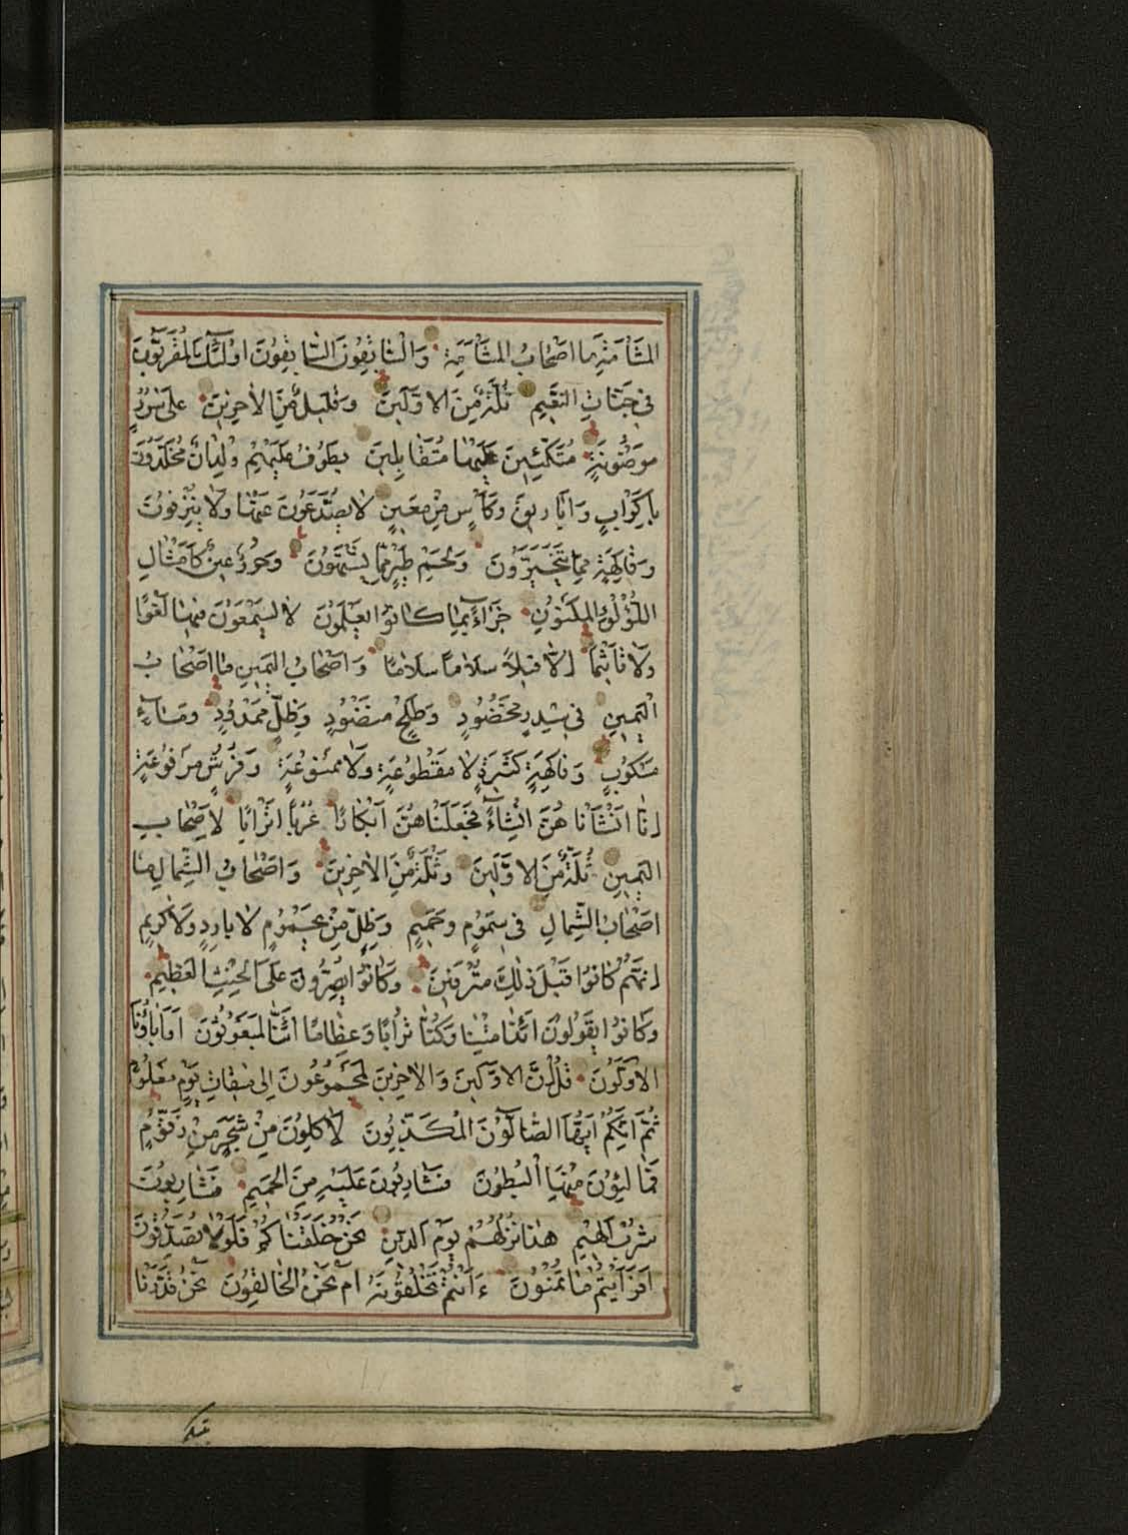 المَشْأَمَةِ مَا اَصْحَابُ المَشْأَمَةِ وَالسَّابِقُونَ السَّابِقُونَ اُولٰئِكَ المُقَرَّبُونَ
فِى جَنَّاتِ النَّعِيمِ ثُلَّةٌ مِنَ الاَوَّلِينَ وَقَلِيلٌ مِنَ الاٰخِرِينَ عَلٰى سُرُرٍ
مَوْضُونَةٍ مُتَّكِئِينَ عَلَيْهَا مُتَقَابِلِينَ يَطُوفُ عَلَيْهِمْ وِلْدَانٌ مُخَلَّدُونَ
بِاَكْوَابٍ وَاَبَارِيقَ وَكَأْسٍ مِنْ مَعِينٍ لَا يُصَدَّعُونَ عَنْهَا وَلَا يُنْزِفُونَ
وَفَاكِهَةٍ مِمَّا يَتَخَيَّرُونَ وَلَحْمِ طَيْرٍ مِمَّا يَشْتَهُونَ وَحُورٌ عِينٌ كَاَمْثَالِ
اللُّؤْلُؤِ المَكْنُونِ جَزَاءً بِمَا كَانُوا يَعْمَلُونَ لَا يَسْمَعُونَ فِيهَا لَغْوًا
وَلَا تَأْثِيمًا اِلَّا قِيلًا سَلَامًا سَلَامًا وَاَصْحَابُ اليَمِينِ مَا اَصْحَابُ
الْيَمِينِ فِى سِدْرٍ مَخْضُودٍ وَطَلْحٍ مَنْضُودٍ وَظِلٍّ مَمْدُودٍ وَمَاءٍ
مَسْكُوبٍ وَفَاكِهَةٍ كَثِيرَةٍ لَا مَقْطُوعَةٍ وَلَا مَمْنُوعَةٍ وَفُرُشٍ مَرْفُوعَةٍ
اِنَّا اَنْشَأْنَاهُنَّ اِنْشَاءً فَجَعَلْنَاهُنَّ اَبْكَارًا عُرُبًا اَتْرَابًا لِاَصْحَابِ
اليَمِينِ ثُلَّةٌ مِنَ الاَوَّلِينَ وَثُلَّةٌ مِنَ الاٰخِرِينَ وَاَصْحَابُ الشِّمَالِ مَا
اَصْحَابُ الشِّمَالِ فِى سَمُومٍ وَحَمِيمٍ وَظِلٍّ مِنْ يَحْمُومٍ لَا بَارِدٍ وَلَا كَرِيمٍ
اِنَّهُمْ كَانُوا قَبْلَ ذٰلِكَ مُتْرَفِينَ وَكَانُوا يُصِرُّونَ عَلَى الْحِنْثِ العَظِيمِ
وَكَانُوا يَقُولُونَ اَئِذَا مِتْنَا وَكُنَّا تُرَابًا وَعِظَامًا اَئِنَّا لَمَبْعُوثُونَ اَوَاٰبَاؤُنَا
الاَوَّلُونَ قُلْ اِنَّ الاَوَّلِينَ وَالاٰخِرِينَ لَمَجْمُوعُونَ اِلٰى مِيقَاتِ يَوْمٍ مَعْلُومٍ
ثُمَّ اِنَّكُمْ اَيُّهَا الضَّالُّونَ الْمُكَذِّبُونَ لَاٰكِلُونَ مِنْ شَجَرٍ مِنْ زَقُّومٍ
فَمَالِئُونَ مِنْهَا الْبُطُونَ فَشَارِبُونَ عَلَيْهِ مِنَ الْحَمِيمِ فَشَارِبُونَ
شُرْبَ الْهِيمِ هٰذَا نُزُلُهُمْ يَوْمَ الدِّينِ نَحْنُ خَلَقْنَاكُمْ فَلَوْلَا تُصَدِّقُونَ
اَفَرَاَيْتُمْ مَا تُمْنُونَ ءَاَنْتُمْ تَخْلُقُونَهُ اَمْ نَحْنُ الْخَالِقُونَ نَحْنُ قَدَّرْنَا
بينكم